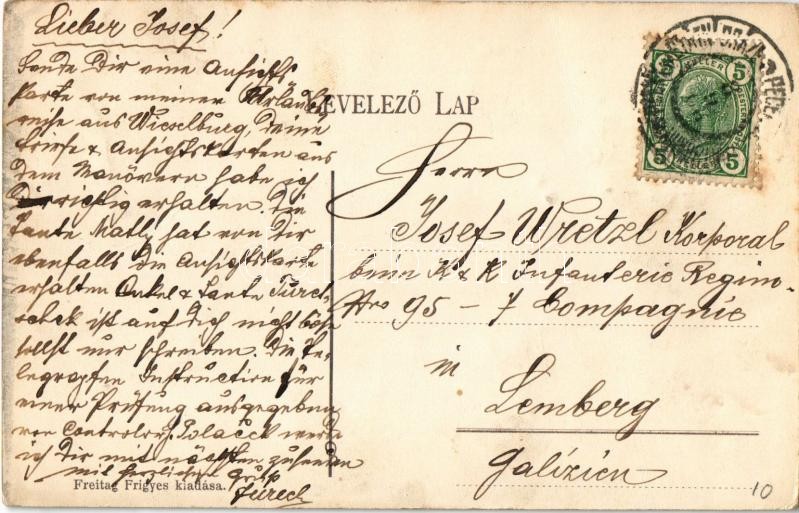 Lieber Josef!
Sende Dir eine Ansichts
Karte von meiner Urlaubs
reise aus Wieselburg, deine
briefe & Ansichtskarten aus
dem Manövern habe ich
richtig erhalten. Die
Tante Mathl hat von Dir
ebenfalls die Ansichtskarte
erhalten Onkel & Tante Turet-
schek ist auf dich nicht böse
sollst nur schreiben. Die Te-
legrapfen Instruction für
einer Prüfung ausgegeben
von Controlor Polaček werde
ich Dir mit nächsten zusenden
mit herzlichen Gruß
LEVELEZŐ LAP
5 HELLER 5
5 HELLER 5
Herrn
Josef Wretzl Korporal
beim K & K Infanterie Regim-
Nro 95 – 7 Compagnie
in
Lemberg
Galizien
Freitag Frigyes kiadása.
10